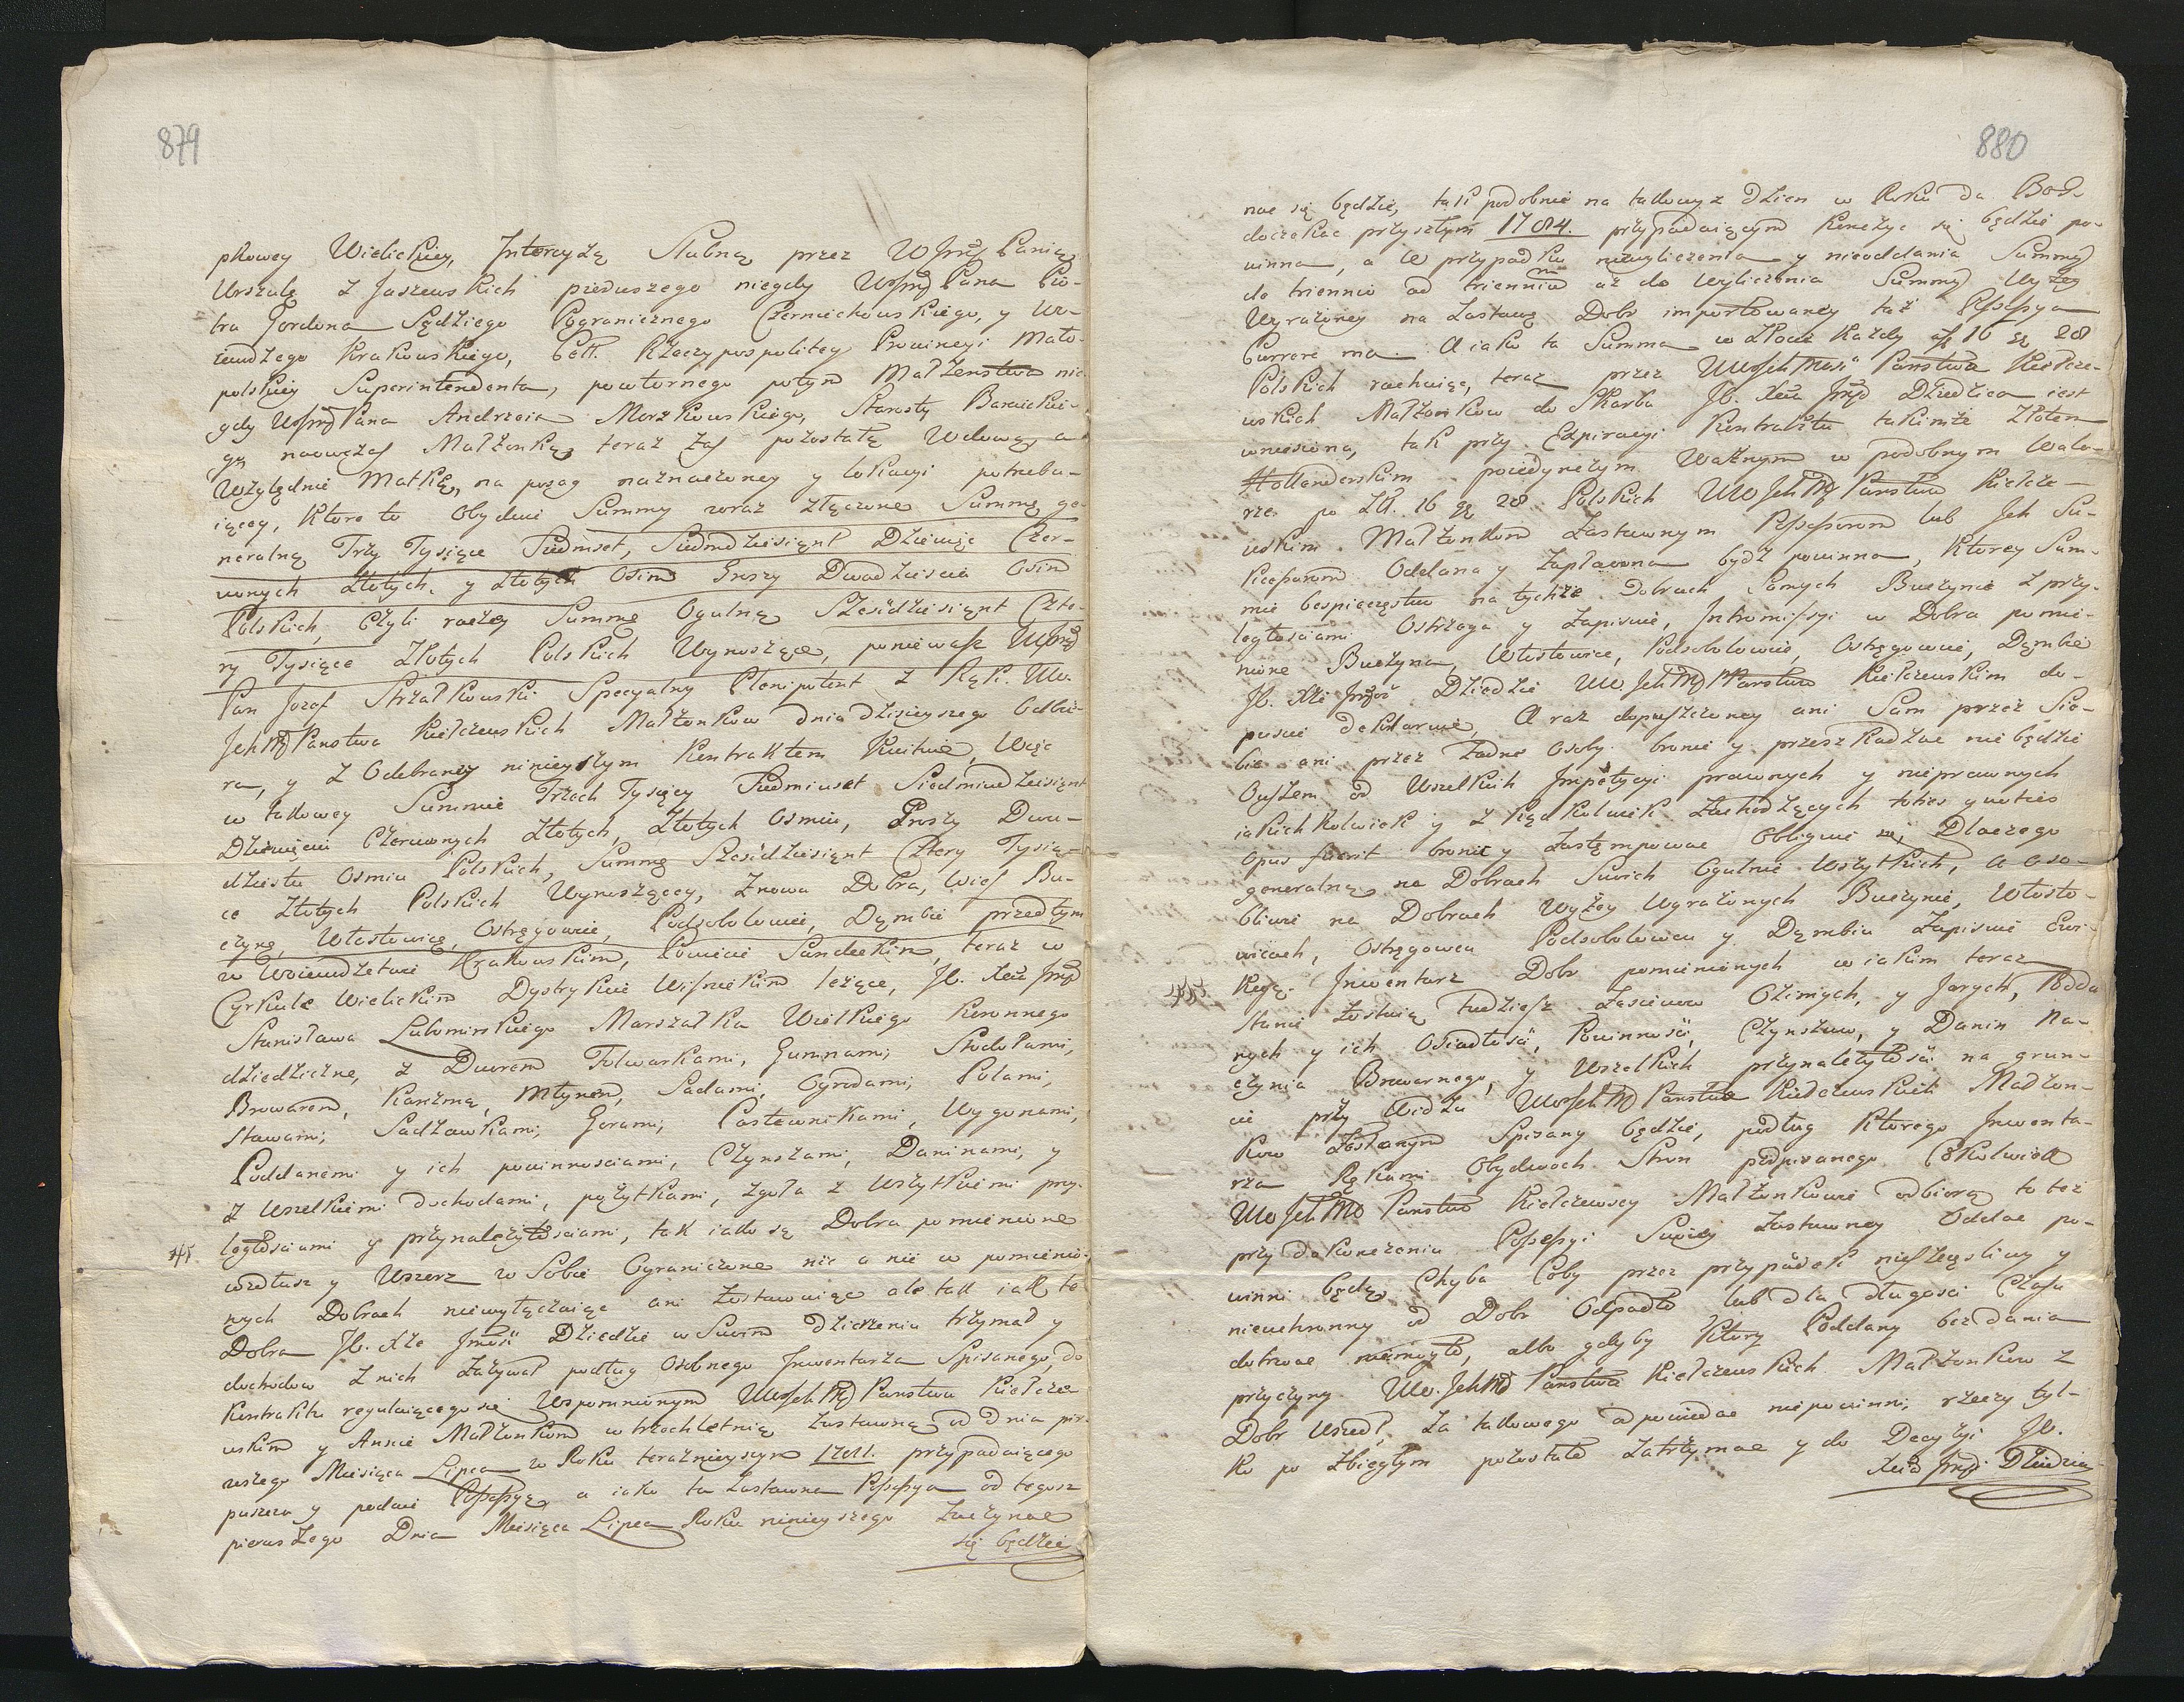 879
pkowey Wielickiey, Intercyzą Slubną przez WJmć Panią
Urszulę z Jaszewskich pierwszego niegdy WJmć Pana Pio-
tra Gordona Sędziego Pogranicznego Czerniechowskiego, y Wo-
iewdzego Krakowskiego, Rzeczypospolitey Prowincyi Mało-
polskiey Superintendenta, powtornego potym Małzenstwa nie-
gdy WJmć Pana Andrzeia Morzkowskiego, Starosty
naowczas Małzonkę, teraz zas pozostałą Wdowę a
Względnie Matkę, na posag naznaczoney y lokacyi potrzebu-
iącey, Ktore to Obydwie Summy wraz złączone Summę ge-
neralną Trzy Tysiące Siedmset, Siedmdziesiąt Dziewięc Czer-
wonych Złotych, y Złotych Osim Groszy Dwadziescia Osim
Polskich, Czyli raczey Summę Ogulną Szescdziesiąt Czte-
ry Tysiące Złotych Polskich Wynoszące, poniewasz WJmć
Pan Jozef Strzałkowski Specyalny Plenipotent z Rąk Ww.
JchMć Panstwa Kiełczewskich Małzonkow dnia dzisieyszego Odbie-
ra, y z Odebraney ninieyszym Kontraktem Kwituie, Więc
w takowey Summie Trzech Tysięcy Siedmiuset Siedmiudziesiąt
Dziewięciu Czerwonych Złotych, Złotych Osmiu, Groszy Dwu-
dziestu Osmiu Polskich, Summę Szescdziesiąt Cztery Tysią-
ce Złotych Polskich Wynoszącey, Znowu Dobra, Wies Bu-
czynę, Włostowice, Ostręgowie, Podsobolowie, Dąmbie przedtym
w Woiewdztwie Krakowskim, Powiecie Sandeckim, teraz w
Cyrkule Wielickim Dystrykcie Wisnickim leżące, JO. Xcia Jmć
Stanisława Lubomirskiego Marszałka Wielkiego Koronnego
dziedziczne, z Dworem Folwarkami, Gumnami, Stodołami,
Browarem, Karczmą, Młynem, Sadami, Ogrodami, Polami,
Stawami, Sadzawkami, Gorami, Pastewnikami, Wygonami,
Poddanemi y ich powinnosciami, Czynszami, Daninami, y
z Wszelkiemi dochodami, pożytkami, zgoła z Wszytkiemi przy-
ległosciami y przynależytosciami, tak iako są Dobra pomienione
wzdłusz y Wszerz w Sobie Ograniczone nic a nic w pomienio-
nych Dobrach niewyłączaiąc ani Zostawuiąc ale tak iak te
Dobra JO. Xże Jmość Dziedzic w Swoim dzierzeniu trzymał y
dochodow z nich zażywał podług Osobnego Inwentarza Spisanego, do
Kontraktu reguluiącego się Wspomnionym WwJchMć Panstwu Kiełcze-
wskim y Annie Małzonkom w trzechletnią Zastawną od dnia pir-
wszego Miesiąca Lipca w Roku teraznieyszym 1781. przypadaiącego
puszcza y podaie Possessyą, a iako ta Zastawna Possessya od tegosz
pierwszego Dnia Miesiąca Lipca Roku ninieyszego Zaczynac
się będzie
880
nac się będzie, tak podobnie na takowyz dzien w Roku da Bog
doczekac przyszłym 1784. przypadaiącym Konczyc się będzie po-
winna, a w przypadku niewyliczenia y nieoddania Summy
do triennio ad triennium aż do Wyliczenia Summy Wyżey
Wyrażoney na Zastawę Dobr importowaney taż Possessya
Currere ma. A iako ta Summa w Złocie każdy 16 gr 28
Polskich rachuiąc, teraz przez Panstwa Kiełcze-
wskich Małżonkow do Skarbu JO. Xcia Jmć Dziedzica iest
wniesiona, tak przy Expiracyi Kontraktu takimże Złotem
Hollenderskim poiedynczym Ważnym w podobnym Walo-
rze po Zł. 16 gr 28 Polskich WwJchMć Panstwu Kiełcze-
wskim Małżonkom Zastawnym Possessorom lub Jch Su-
kcessorom Oddana y Zapłacona bydź powinna, Ktorey Sum-
mie bespieczęstwo na tychże Dobrach Samych Buczynie z przy-
ległosciami Ostrzega y Zapisuie, Intromissyi w Dobra pomie-
nione Buczyna, Włostowice, Podsobolowie, Ostręgowie, Dąmbie
JO. Xże Jmość Dziedzic Ww. JchMć Panstwu Kiełczewskim do-
puscic deklaruie, A raz dopuszczoney ani Sam przez Sie-
bie ani przez żadne Osoby bronic y przeszkadzac nie będzie
Owszem od Wszelkich Impetycyi prawnych y nieprawnych
iakichkolwiek y z kądkolwiek Zachodzących toties quoties
opus fuerit bronic y Zastępowac Obliguie się, Dlaczego
generalną na Dobrach Swoich Ogulnie Wszytkich, a oso-
bliwie na Dobrach Wyżey Wyrażonych Buczynie, Włosto-
wicach, Ostręgowcu Podsobolowcu y Dąmbiu Zapisuie Ewi-
kcyą. Inwentarz Dobr pomienionych w iakim teraz
Stanie Zostaią tudziesz Zasiewow Ozimych, y Jarych, Podda-
nych y ich Osiadłosci, Powinnosci, Czynszow, y Danin Na-
czynia Browarnego, y Wszelkich przynależytosci na grun-
cie przy Widzu WwJchMć Panstwa Kiełczewskich Małzon-
kow Zesłanym Spisany będzie, podług Ktorego Inwenta-
rza Rękami Obydwoch Stron podpisanego Cokolwiek
WwJchMć Panstwo Kiełczewscy Małżonkowie odbiorą to też
przy dokonczeniu Possessyi Swoiey Zastawney Oddac po-
winni będą Chyba Coby przez przypadek nieszczęsliwy y
nieuchronny od Dobr Odpadło lub dla długosci Czasu
dotrwac niemogło, albo gdyby Ktory Poddany bez dania
przyczyny Ww. JchMć Panstwa Kiełczewskich Małżonkow z
Dobr Uszedł, za takowego odpowiedac niepowinni, rzeczy tyl-
ko po zbiegłym pozostałe Zatrzymac y do Decyzyi JO.
Xcia Jmći Dziedzica